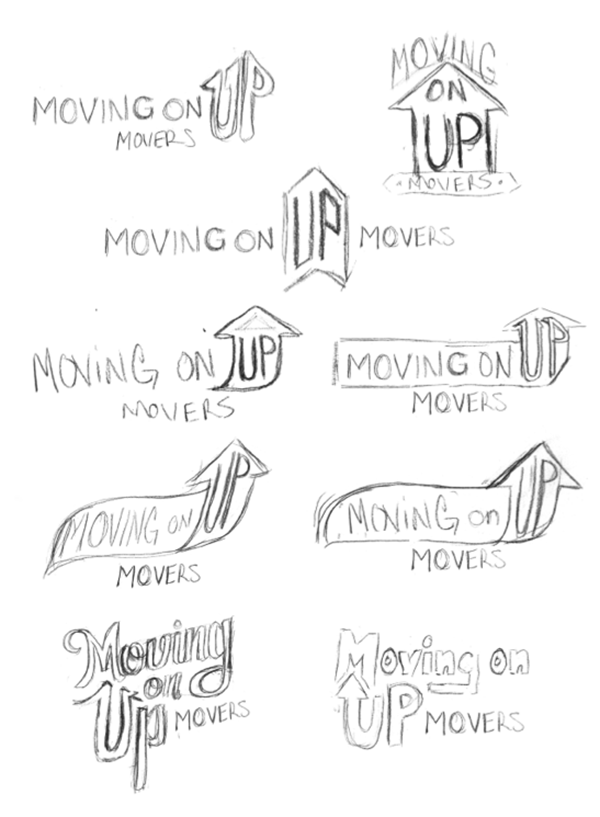 MOVING ON UP
MOVERS
MOVING
ON
UP
MOVERS
MOVING ON UP MOVERS
MOViNG ON UP
MOVERS
MOVING ON UP
MOVERS
MOVING ON UP
MOVERS
MOViNG on UP
MOVERS
Moving
on
Up MOVERS
Moving on
UP MOVERS